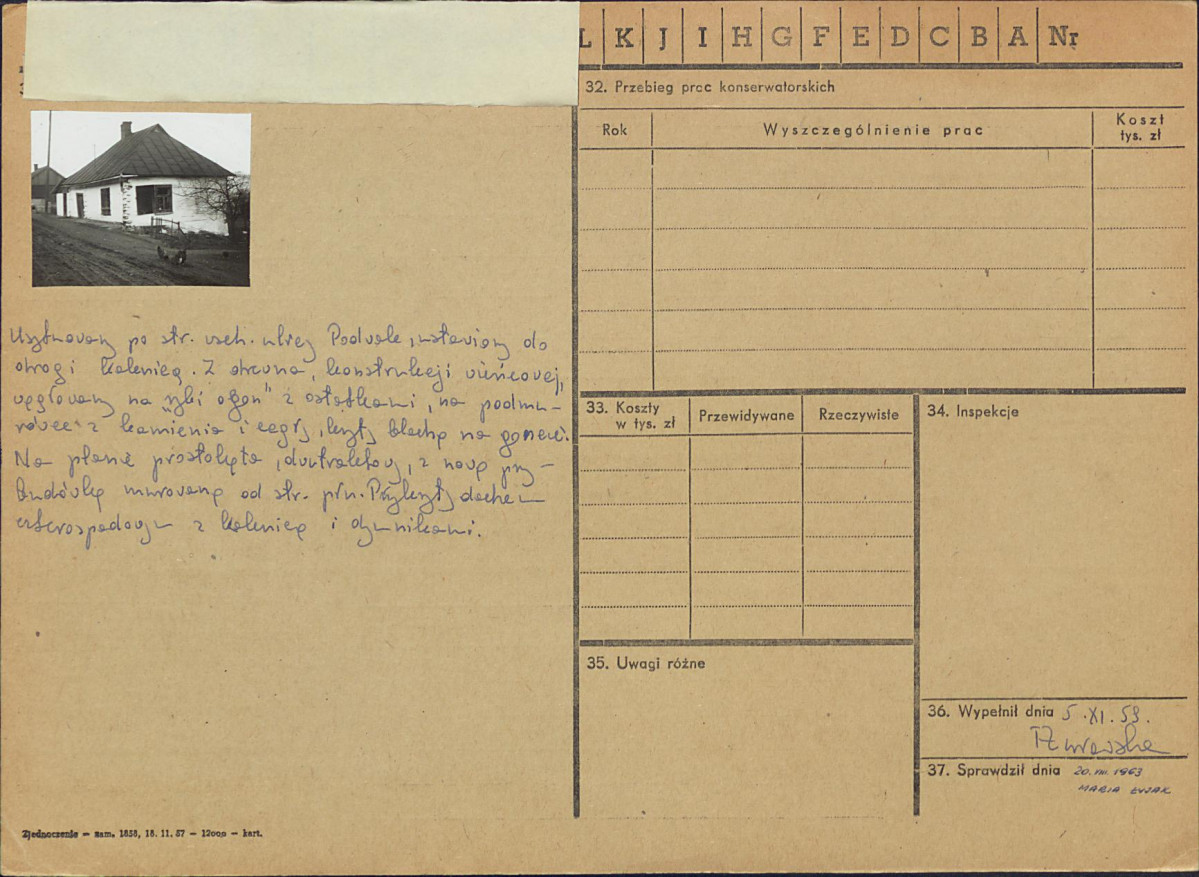 L K J I H G F E D C B A Nr
Usytuowany po str. wsch. ulicy Podwale, ustawiony do
drogi kalenicą. Z drewna, konstrukcji wieńcowej,
węgłowany na "rybi ogon" z ostatkami, na podmu-
rówce z kamienia i cegły, kryty blachą na goncie.
Na planie prostokąta, dwutraktowy, z nową przy-
budówką murowaną od str. płn. Przykryty dachem
czterospadowym z kalenicą i dymnikami.
Zjednoczenie — zam. 1858, 18. 11. 57 — 12000 — kart.
32. Przebieg prac konserwatorskich
Rok
Wyszczególnienie prac
Koszt
tys. zł
33. Koszty
w tys. zł
Przewidywane
Rzeczywiste
34. Inspekcje
35. Uwagi różne
36. Wypełnił dnia 5.XI.59.
37. Sprawdził dnia 20.VIII.1963
MARIA